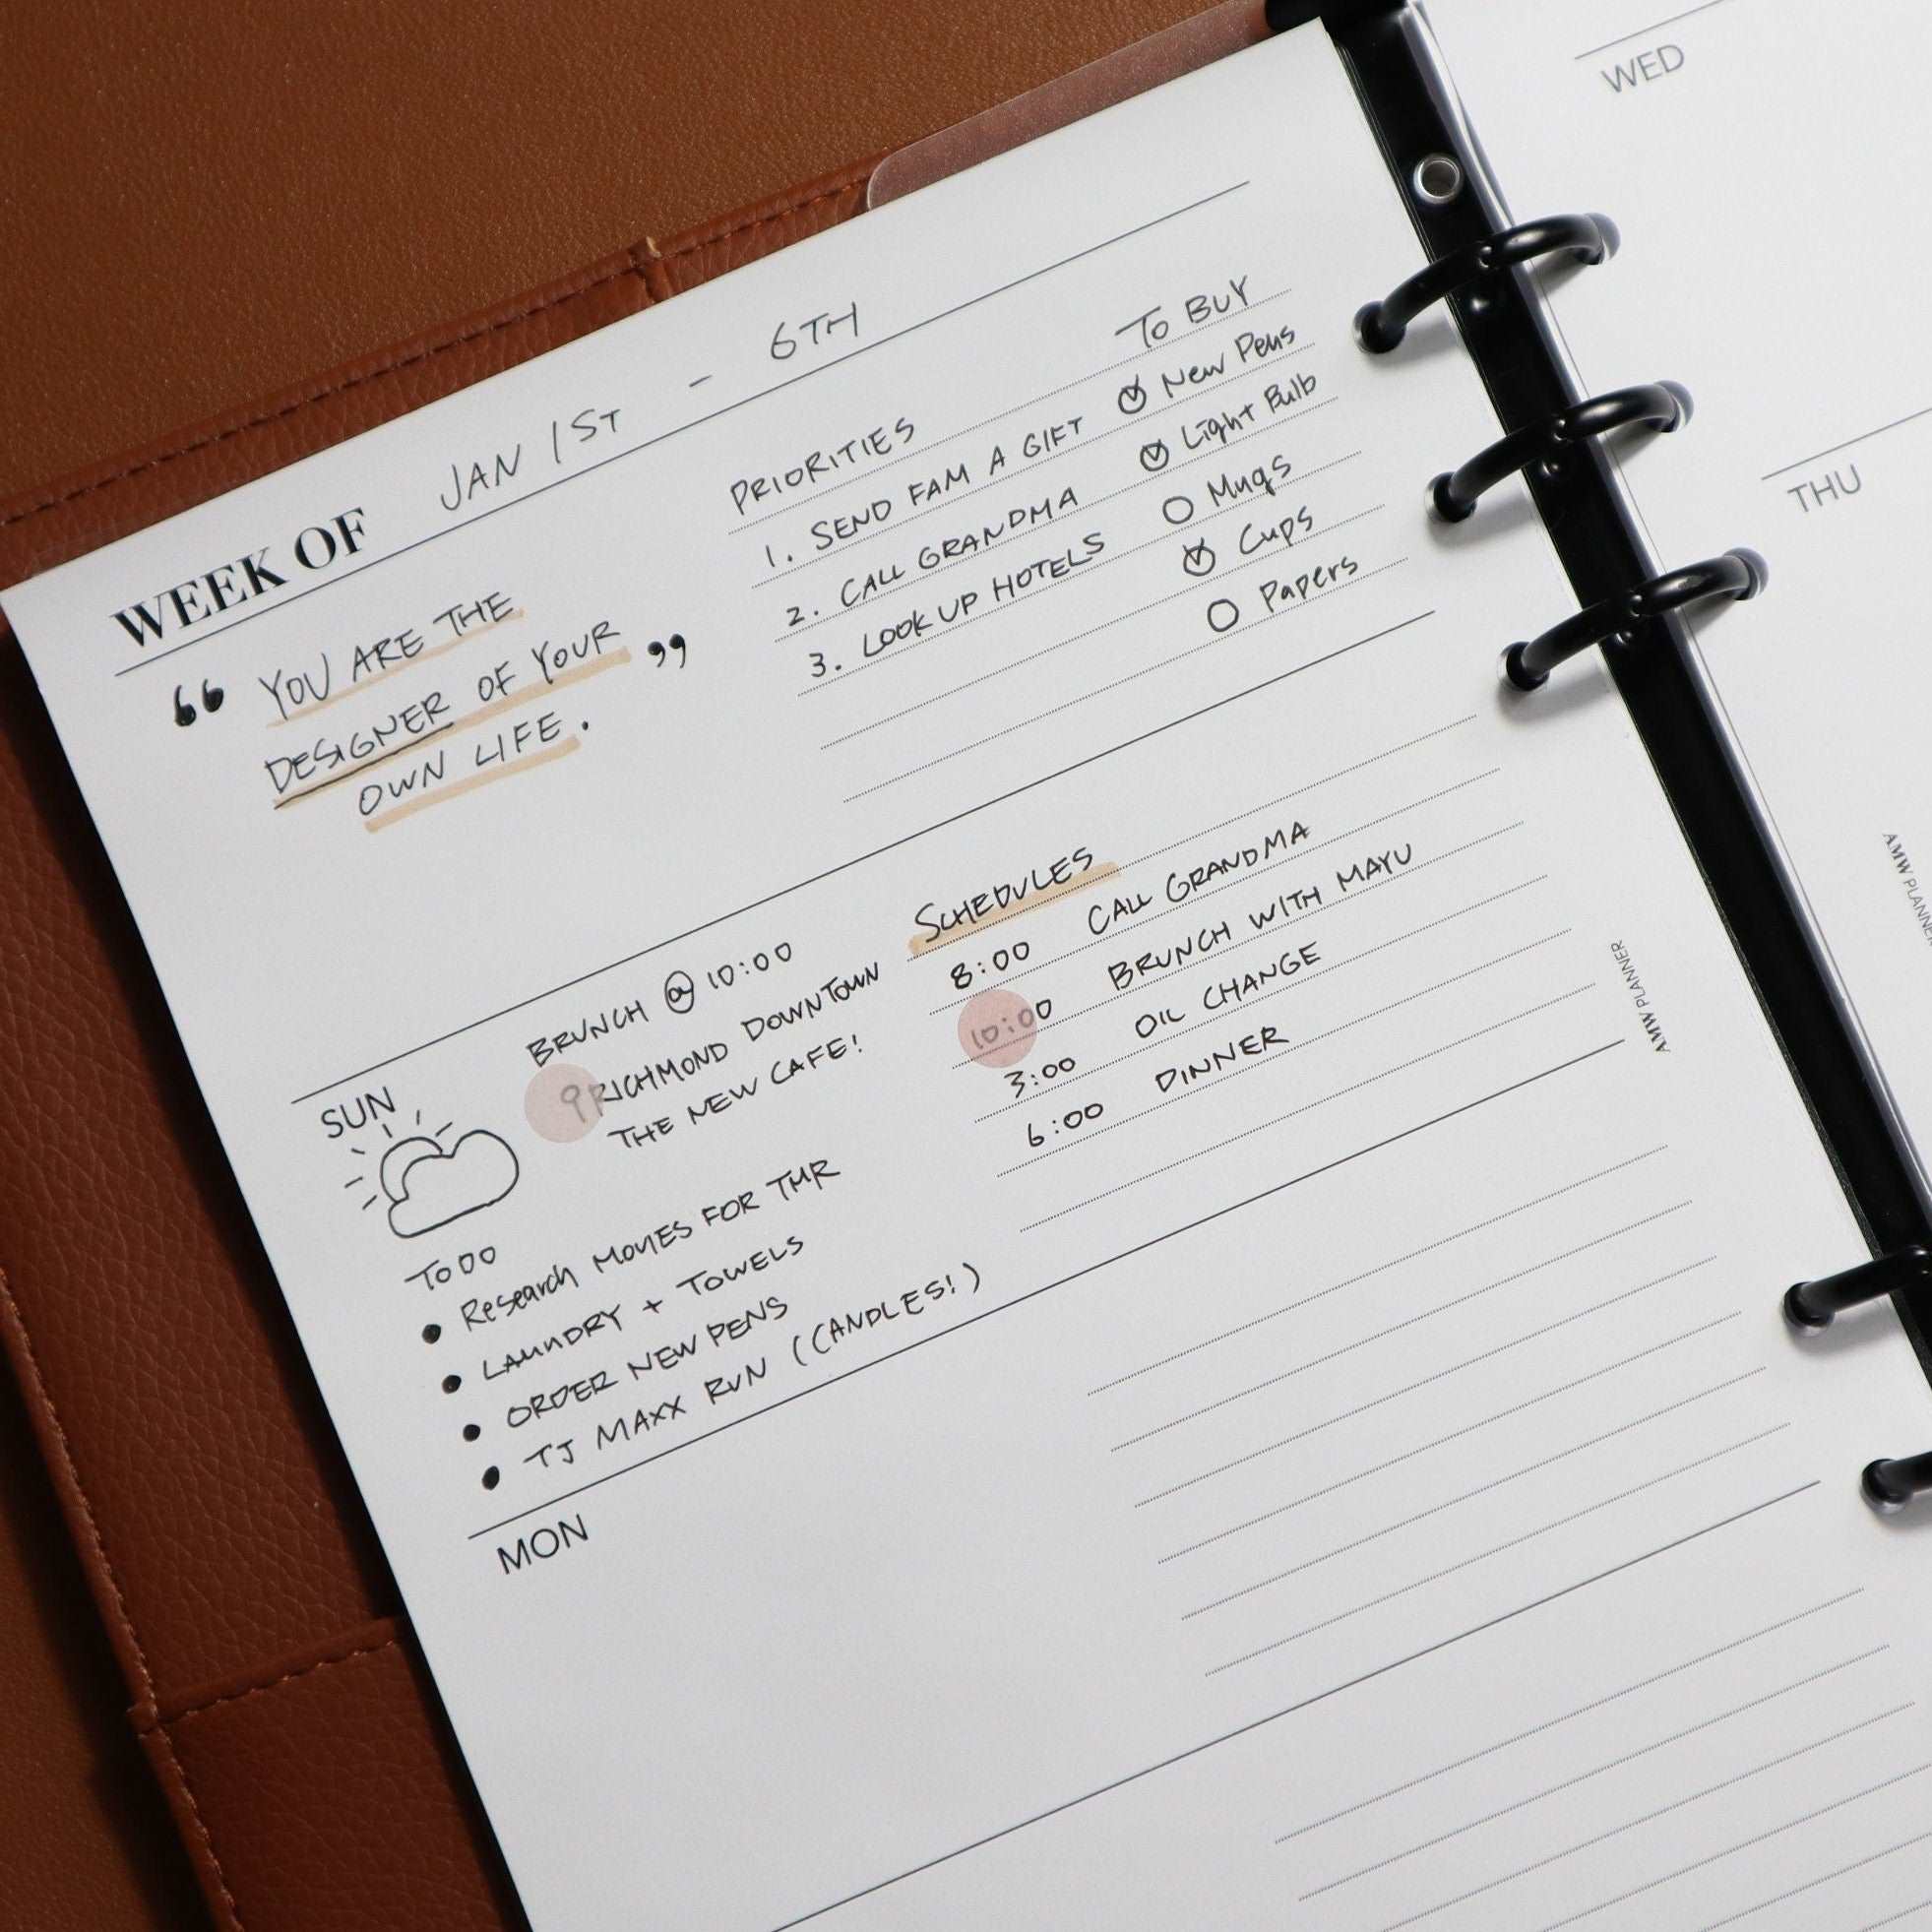 WEEK OF JAN 1ST - 6TH
“ YOU ARE THE
DESIGNER OF YOUR
OWN LIFE. ”
PRIORITIES
1. SEND FAM A GIFT
2. CALL GRANDMA
3. LOOK UP HOTELS
TO BUY
New Pens
Light Bulb
Mugs
Cups
Papers
SUN
BRUNCH @ 10:00
RICHMOND DOWNTOWN
THE NEW CAFE!
TODO
• Research MOVIES FOR TMR
• LAUNDRY + TOWELS
• ORDER NEW PENS
• TJ MAXX RUN (CANDLES!)
SCHEDULES
8:00 CALL GRANDMA
10:00 BRUNCH WITH MAYU
3:00 OIL CHANGE
6:00 DINNER
MON
AMW PLANNER
WED
THU
AMW PLANNER